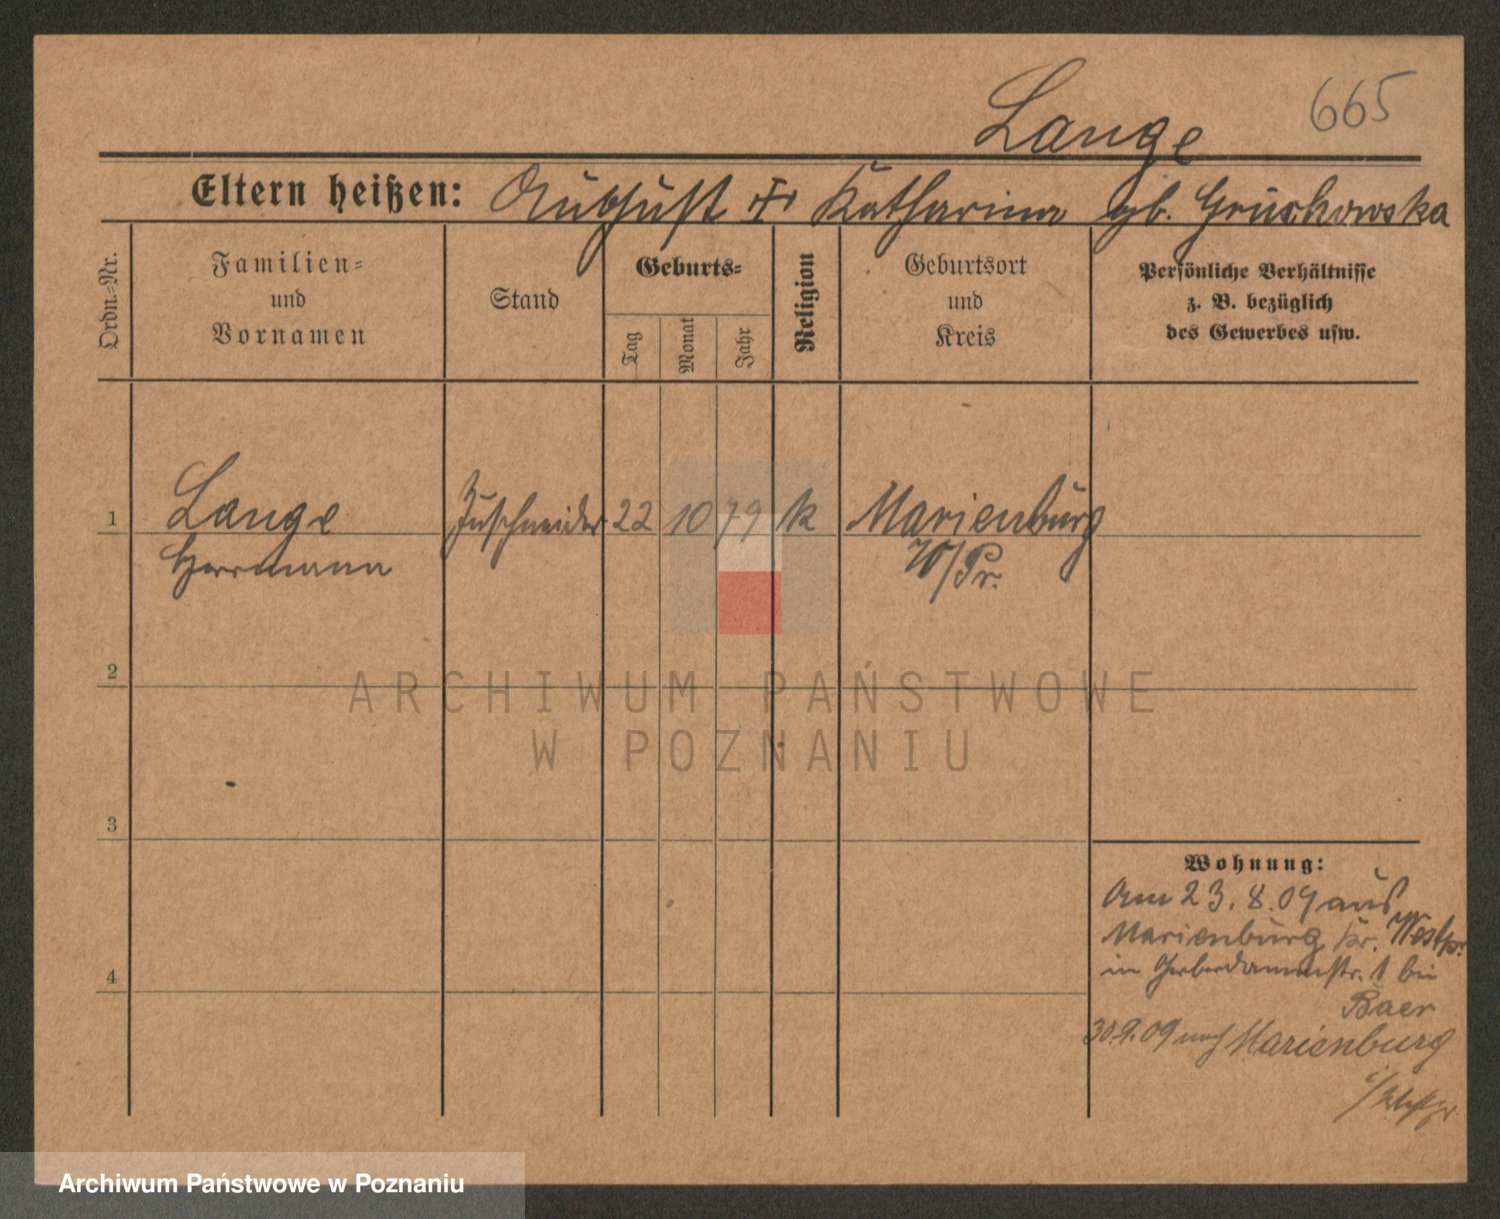 665
Lange
Eltern heißen: August u Katharina gb. Gruschowska
Ordn.-Nr.
Familien-
und
Vornamen
Stand
Geburts-
Tag
Monat
Jahr
Religion
Geburtsort
und
Kreis
Persönliche Verhältnisse
z. B. bezüglich
des Gewerbes usw.
1
Lange
Herrmann
Zuschneider
22
10
79
k
Marienburg
W/Pr.
2
3
4
Wohnung:
Am 23.8.09 aus
Marienburg Kr. Westpr.
in Gerberdammstr. 1 bei
Baer
30.9.09 nach Marienburg
i/Westpr.
ARCHIWUM PAŃSTWOWE
W POZNANIU
Archiwum Państwowe w Poznaniu